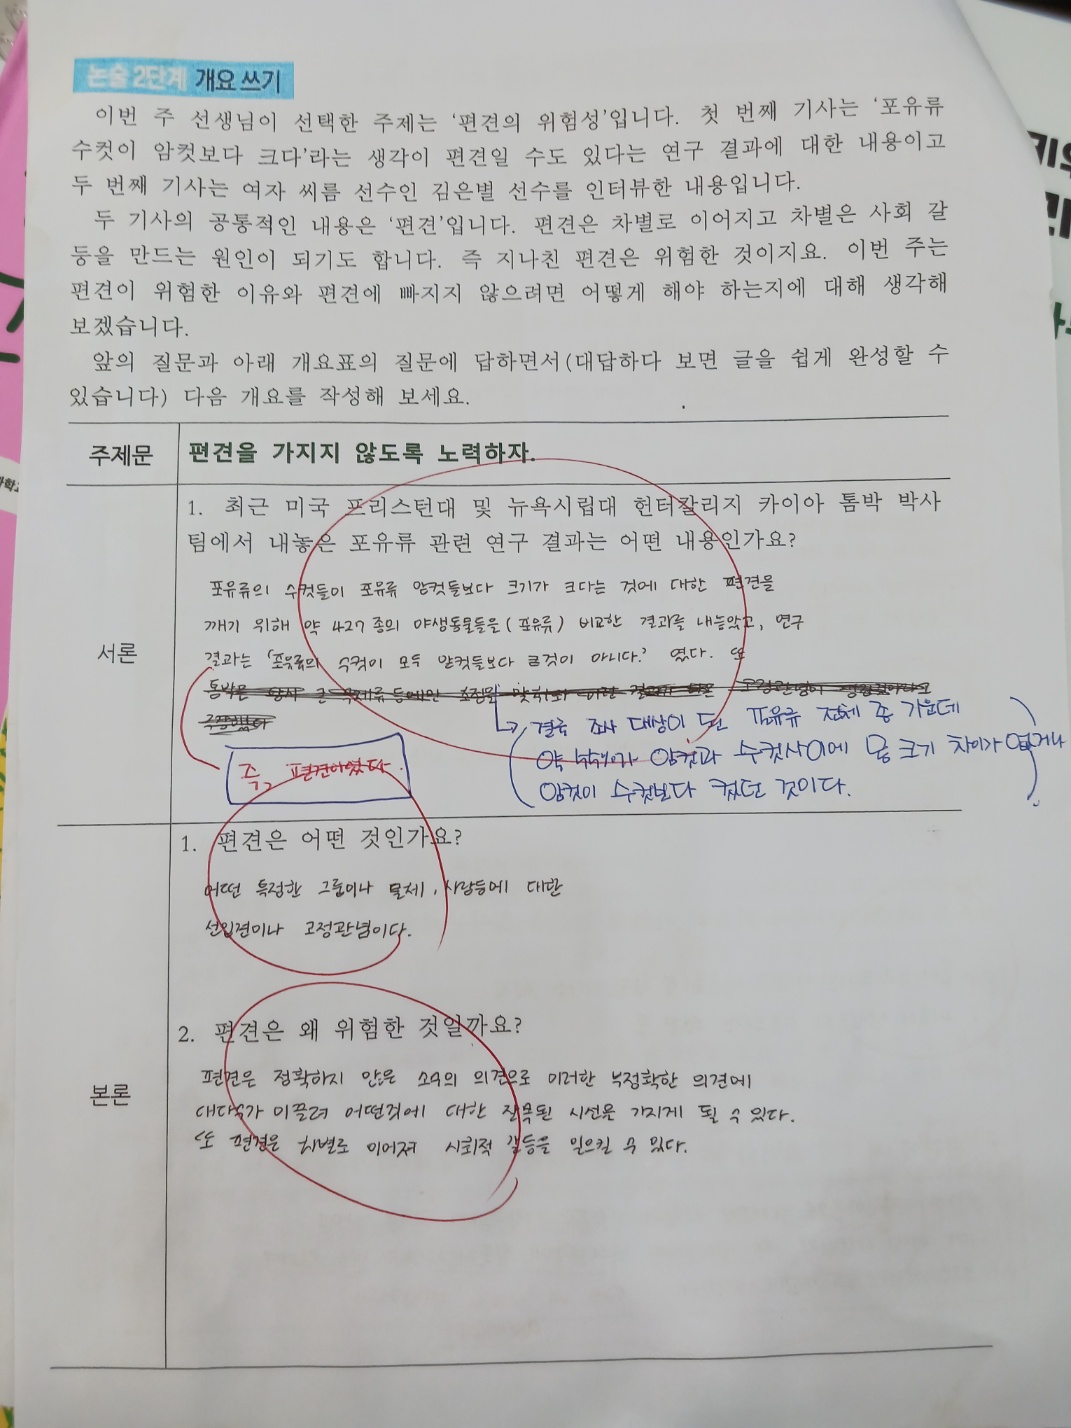 논술 2단계 개요 쓰기
이번 주 선생님이 선택한 주제는 '편견의 위험성'입니다. 첫 번째 기사는 '포유류
수컷이 암컷보다 크다'라는 생각이 편견일 수도 있다는 연구 결과에 대한 내용이고
두 번째 기사는 여자 씨름 선수인 김은별 선수를 인터뷰한 내용입니다.
두 기사의 공통적인 내용은 '편견'입니다. 편견은 차별로 이어지고 차별은 사회 갈
등을 만드는 원인이 되기도 합니다. 즉 지나친 편견은 위험한 것이지요. 이번 주는
편견이 위험한 이유와 편견에 빠지지 않으려면 어떻게 해야 하는지에 대해 생각해
보겠습니다.
앞의 질문과 아래 개요표의 질문에 답하면서(대답하다 보면 글을 쉽게 완성할 수
있습니다) 다음 개요를 작성해 보세요.
주제문 편견을 가지지 않도록 노력하자.
1. 최근 미국 프리스턴대 및 뉴욕시립대 헌터칼리지 카이아 톰박 박사
팀에서 내놓은 포유류 관련 연구 결과는 어떤 내용인가요?
포유류의 수컷들이 포유류 암컷들보다 크기가 크다는 것에 대한 편견을
깨기 위해 약 427종의 야생동물들을(포유류) 비교한 결과를 내놓았고, 연구
서론
결과는 '포유류의 수컷이 모두 암컷들보다 큰것이 아니다.' 였다. 또
결국 조사 대상이 된 포유류 전체 종 가운데
약 암컷과 수컷사이에 몸 크기 차이가 없거나
암컷이 수컷보다 컸던 것이다.
즉, 편견이었다.
1. 편견은 어떤 것인가요?
어떤 특정한 그룹이나 물체, 사람등에 대한
선입견이나 고정관념이다.
2. 편견은 왜 위험한 것일까요?
편견은 정확하지 않은 소수의 의견으로 이러한 부정확한 의견에
본론
대다수가 이끌려 어떤것에 대한 잘못된 시선을 가지게 될 수 있다.
또 편견은 차별로 이어져 사회적 갈등을 일으킬 수 있다.